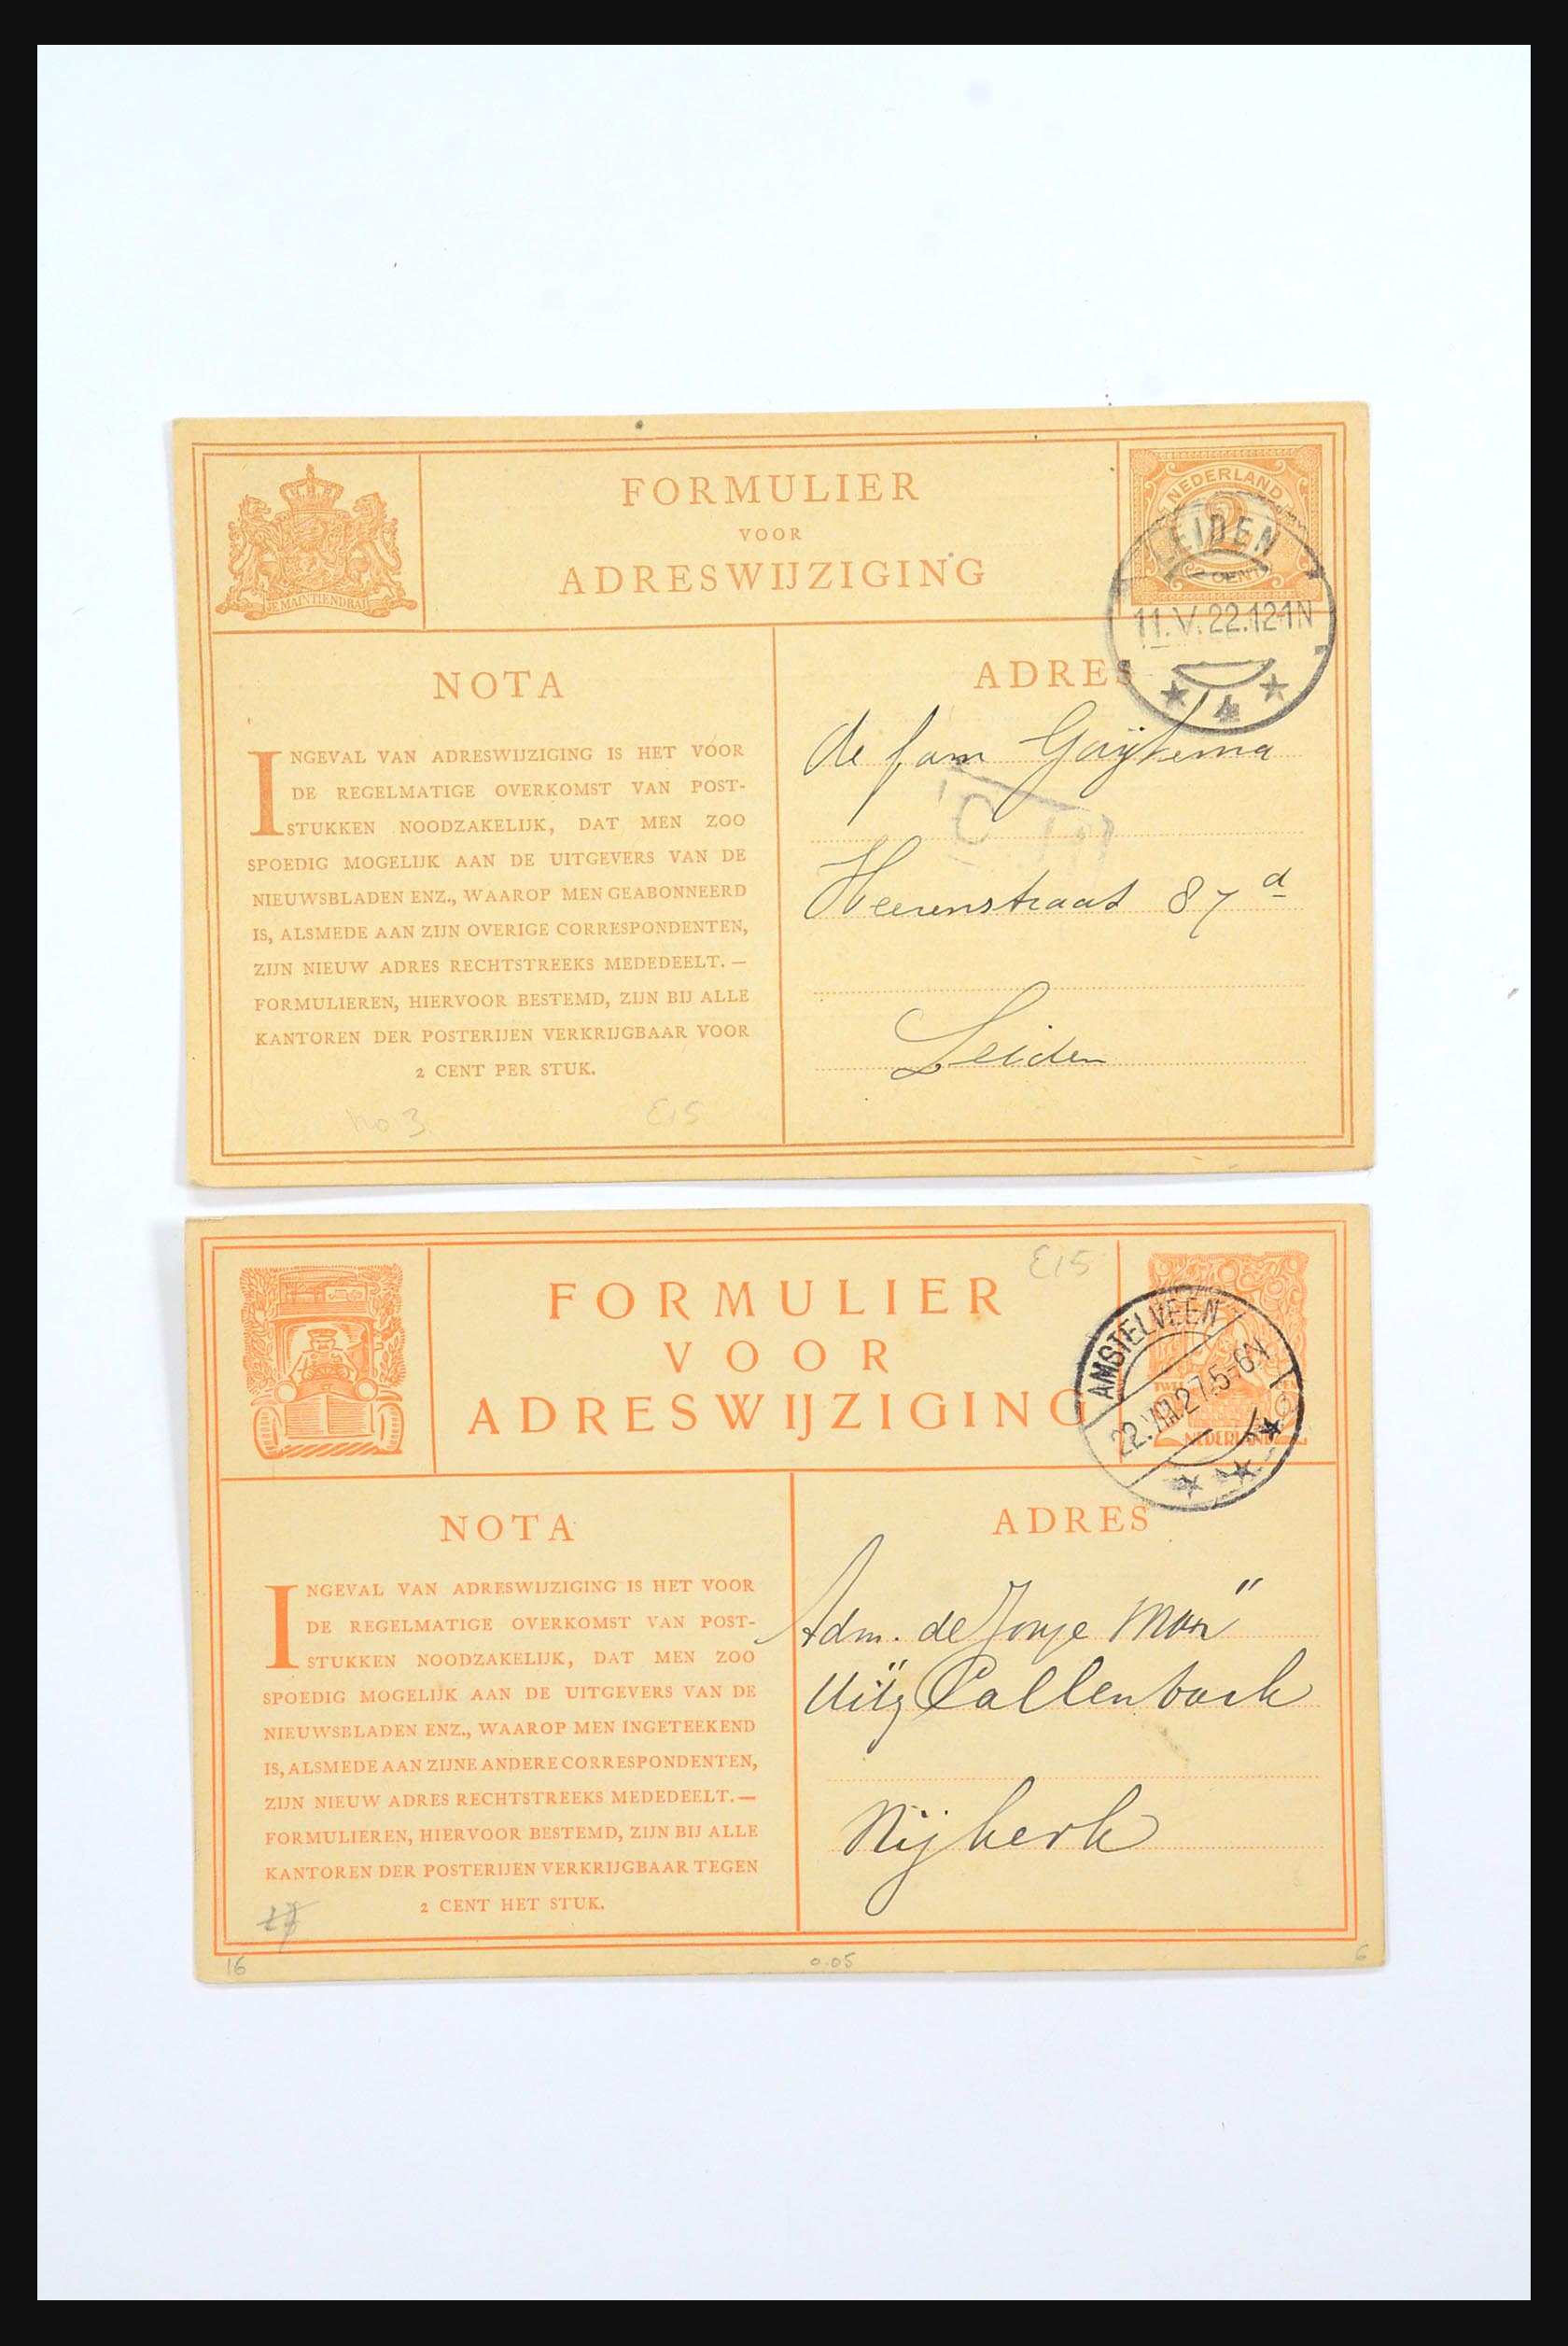 JE MAINTIENDRAI
FORMULIER
VOOR
ADRESWIJZIGING
NEDERLAND
2
2 CENT
LEIDEN
11.V.22.12-1N
4
NOTA
INGEVAL VAN ADRESWIJZIGING IS HET VOOR
DE REGELMATIGE OVERKOMST VAN POST-
STUKKEN NOODZAKELIJK, DAT MEN ZOO
SPOEDIG MOGELIJK AAN DE UITGEVERS VAN DE
NIEUWSBLADEN ENZ., WAAROP MEN GEABONNEERD
IS, ALSMEDE AAN ZIJN OVERIGE CORRESPONDENTEN,
ZIJN NIEUW ADRES RECHTSTREEKS MEDEDEELT. —
FORMULIEREN, HIERVOOR BESTEMD, ZIJN BIJ ALLE
KANTOREN DER POSTERIJEN VERKRIJGBAAR VOOR
2 CENT PER STUK.
no 3
€15
ADRES
de fam
Heerenstraat 87 d
Leiden
FORMULIER
VOOR
ADRESWIJZIGING
€15
AMSTELVEEN
22.VIII.27.5-6N
NEDERLAND
NOTA
INGEVAL VAN ADRESWIJZIGING IS HET VOOR
DE REGELMATIGE OVERKOMST VAN POST-
STUKKEN NOODZAKELIJK, DAT MEN ZOO
SPOEDIG MOGELIJK AAN DE UITGEVERS VAN DE
NIEUWSBLADEN ENZ., WAAROP MEN INGETEEKEND
IS, ALSMEDE AAN ZIJNE ANDERE CORRESPONDENTEN,
ZIJN NIEUW ADRES RECHTSTREEKS MEDEDEELT. —
FORMULIEREN, HIERVOOR BESTEMD, ZIJN BIJ ALLE
KANTOREN DER POSTERIJEN VERKRIJGBAAR TEGEN
2 CENT HET STUK.
ADRES
Adm. de Jonge Man"
Uitg Callenbach
Nijkerk
16
0.05
6